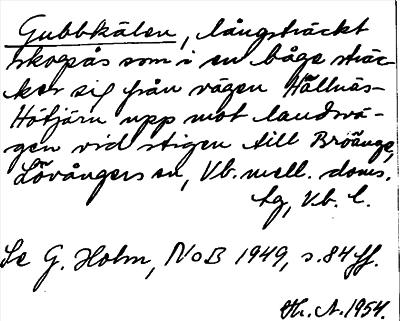 Gubbkälen, långsträckt
skogsås som i en båge sträc-
ker sig från vägen Hällnäs-
Hötjärn upp mot landsvä-
gen vid stigen till Broänge,
Lövångers sn, Vb. mell. doms.
hg, Vb. l.
Se G. Holm, NoB 1949, s. 84 ff.
Th. A. 1954.